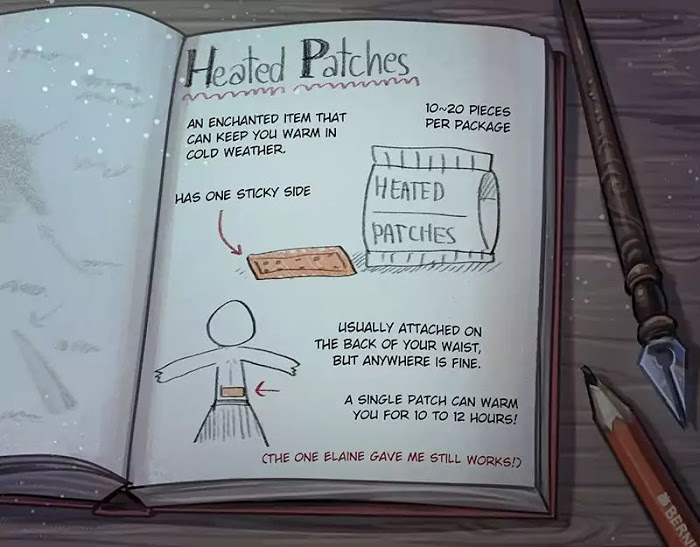 Heated Patches
AN ENCHANTED ITEM THAT
CAN KEEP YOU WARM IN
COLD WEATHER.
10~20 PIECES
PER PACKAGE
HAS ONE STICKY SIDE
HEATED
PATCHES
USUALLY ATTACHED ON
THE BACK OF YOUR WAIST,
BUT ANYWHERE IS FINE.
A SINGLE PATCH CAN WARM
YOU FOR 10 TO 12 HOURS!
(THE ONE ELAINE GAVE ME STILL WORKS!)
BERN